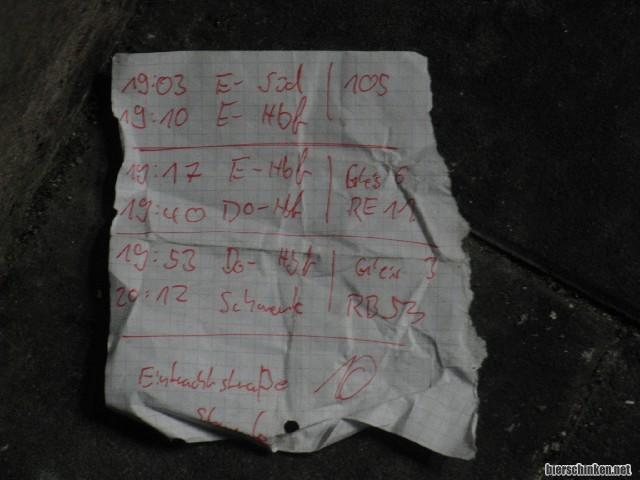 19:03 E- Süd 105
19:10 E- Hbf
19:17 E-Hbf Gleis 6
19:40 Do-Hbf RE 11
19:53 Do- Hbf Gleis 3
20:12 Schwerte RB53
Eintrachtstraße 10
bierschinken.net